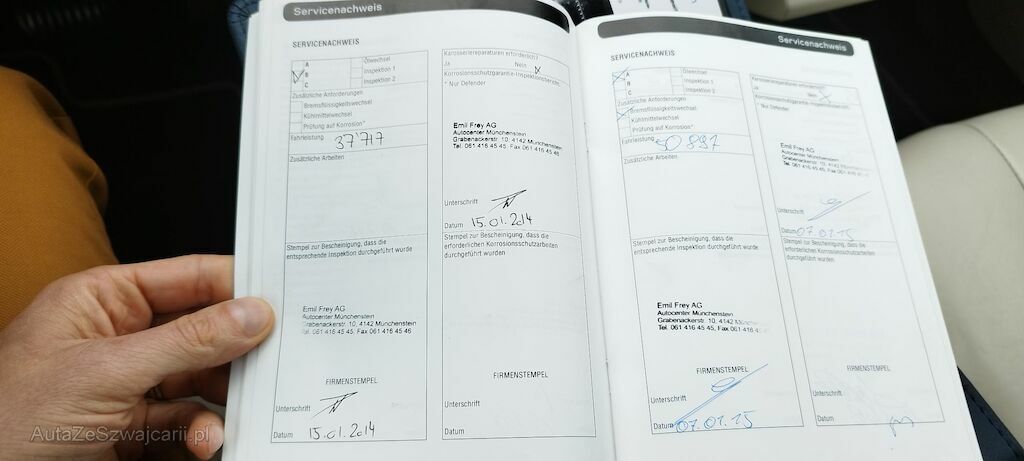 Servicenachweis
SERVICENACHWEIS
A
B
C
Ölwechsel
Inspektion 1
Inspektion 2
Zusätzliche Anforderungen
Bremsflüssigkeitswechsel
Kühlmittelwechsel
Prüfung auf Korrosion*
Fahrleistung 37'717
Zusätzliche Arbeiten
Stempel zur Bescheinigung, dass die
entsprechende Inspektion durchgeführt wurde
Emil Frey AG
Autocenter Münchenstein
Grabenackerstr. 10, 4142 Münchenstein
Tel. 061 416 45 45, Fax 061 416 45 46
FIRMENSTEMPEL
Unterschrift
Datum 15.01.2014
Karosseriereparaturen erforderlich?
Ja Nein
Korrosionsschutzgarantie-Inspektionsbericht
* Nur Defender
Emil Frey AG
Autocenter Münchenstein
Grabenackerstr. 10, 4142 Münchenstein
Tel. 061 416 45 45, Fax 061 416 45 46
Unterschrift
Datum 15.01.2014
Stempel zur Bescheinigung, dass die
erforderlichen Korrosionsschutzarbeiten
durchgeführt wurden
FIRMENSTEMPEL
Unterschrift
Datum
Servicenachweis
SERVICENACHWEIS
A
B
C
Ölwechsel
Inspektion 1
Inspektion 2
Zusätzliche Anforderungen
Bremsflüssigkeitswechsel
Kühlmittelwechsel
Prüfung auf Korrosion*
Fahrleistung 50897
Zusätzliche Arbeiten
Stempel zur Bescheinigung, dass die
entsprechende Inspektion durchgeführt wurde
Emil Frey AG
Autocenter Münchenstein
Grabenackerstr. 10, 4142 Münchenstein
Tel. 061 416 45 45, Fax 061 416 4
FIRMENSTEMPEL
Unterschrift
Datum 07.01.15
Karosseriereparaturen erforderlich?
Ja Nein
Korrosionsschutzgarantie-Inspektionsbericht
* Nur Defender
Emil Frey AG
Autocenter Münchenstein
Grabenackerstr. 10, 4142 Münchenstein
Tel. 061 416 45 45, Fax 061 416
Unterschrift
Datum 07.01.15
Stempel zur Bescheinigung, dass die
erforderlichen Korrosionsschutzarbeiten
durchgeführt wurden
FIRMENSTEMPEL
Unterschrift
Datum
AutaZeSzwajcarii.pl